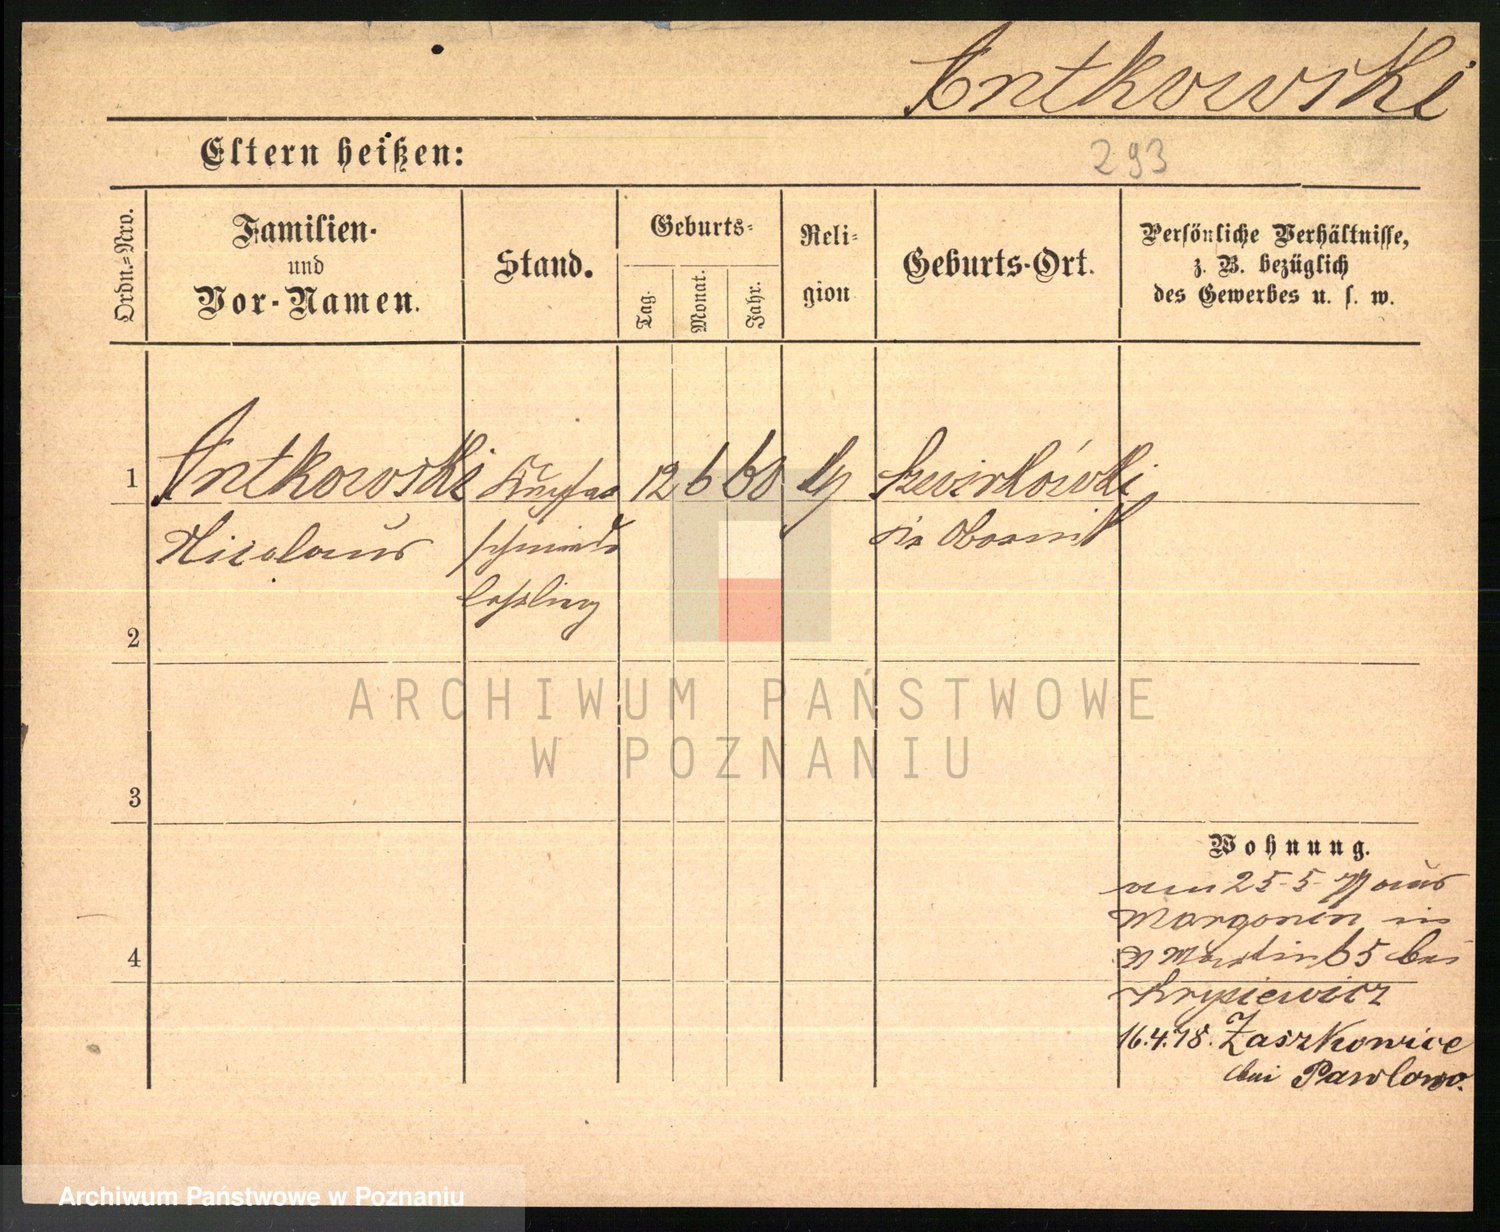 Antkowski
Eltern heißen:
293
Ordn.-Nro.
Familien-
und
Vor-Namen.
Stand.
Geburts-
Tag.
Monat.
Jahr.
Reli-
gion
Geburts-Ort.
Persönliche Verhältnisse,
z. B. bezüglich
des Gewerbes u. s. w.
1 Antkowski Kupfer 12 6 60
Nicolaus schmiede Obornik
lehrling
2
3
4
Wohnung.
am 25-5-77 aus
Margonin in
St Martin 65 bei
Krysiewicz
16.4.78. Zaszkowice
bei Pawlowo.
ARCHIWUM PAŃSTWOWE
W POZNANIU
Archiwum Państwowe w Poznaniu